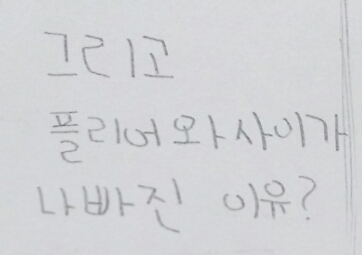 그리고
플리어와사이가
나빠진 이유?